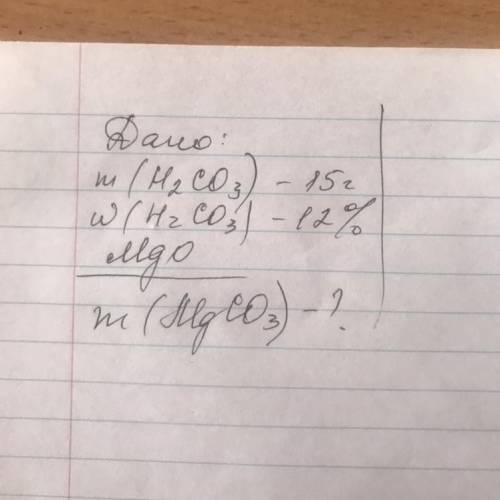 Дано:
m (H₂CO₃) - 15г
w (H₂CO₃) - 12%
MgO
m (MgCO₃) - ?